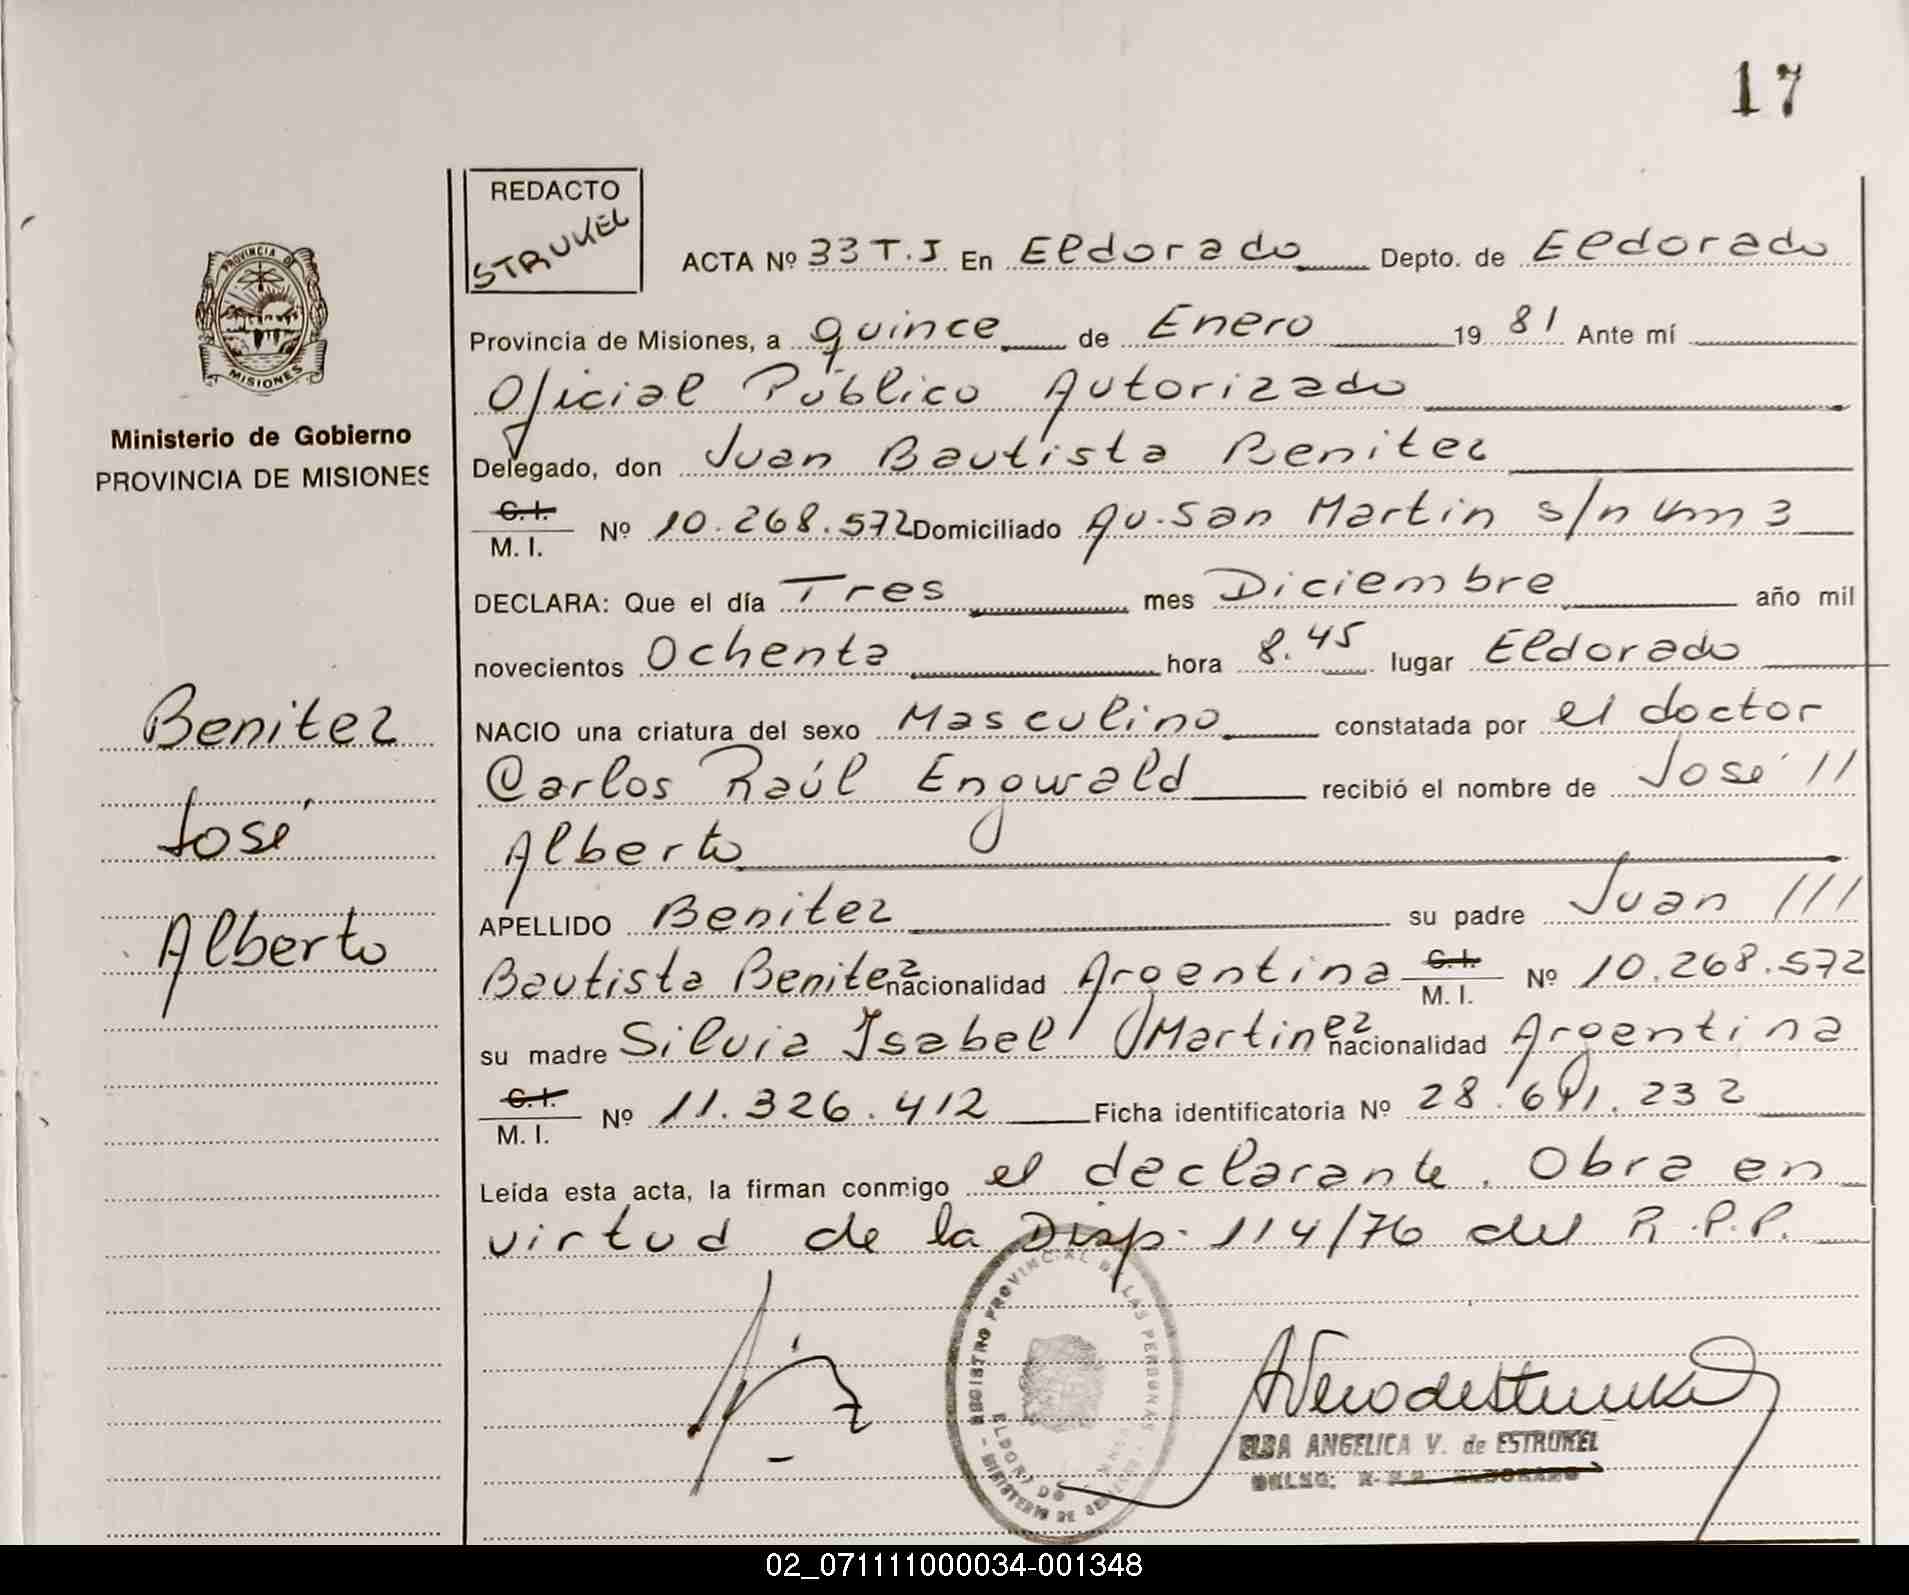 17
REDACTO
STRUKEL
ACTA Nº 33 T.J En Eldorado Depto. de Eldorado
Provincia de Misiones, a quince de Enero 1981 Ante mí
Oficial Público Autorizado
Delegado, don Juan Bautista Benitez
C.I. M.I. Nº 10.268.572 Domiciliado Av. San Martin s/n km 3
DECLARA: Que el día Tres mes Diciembre año mil
novecientos Ochenta hora 8.45 lugar Eldorado
NACIO una criatura del sexo Masculino constatada por el doctor
Carlos Raúl Engwald recibió el nombre de José //
Alberto
APELLIDO Benitez su padre Juan ///
Bautista Benitez nacionalidad Argentina C.I. M.I. Nº 10.268.572
su madre Silvia Isabel Martinez nacionalidad Argentina
C.I. M.I. Nº 11.326.412 Ficha identificatoria Nº 28.691.232
Leída esta acta, la firman conmigo el declarante. Obra en
virtud de la Disp. 114/76 del R.P.P.
PROVINCIA DE
MISIONES
Ministerio de Gobierno
PROVINCIA DE MISIONES
Benitez
José
Alberto
REGISTRO PROVINCIAL DE LAS PERSONAS
ELDORADO
ELBA ANGELICA V. de ESTRUKEL
02_071111000034-001348